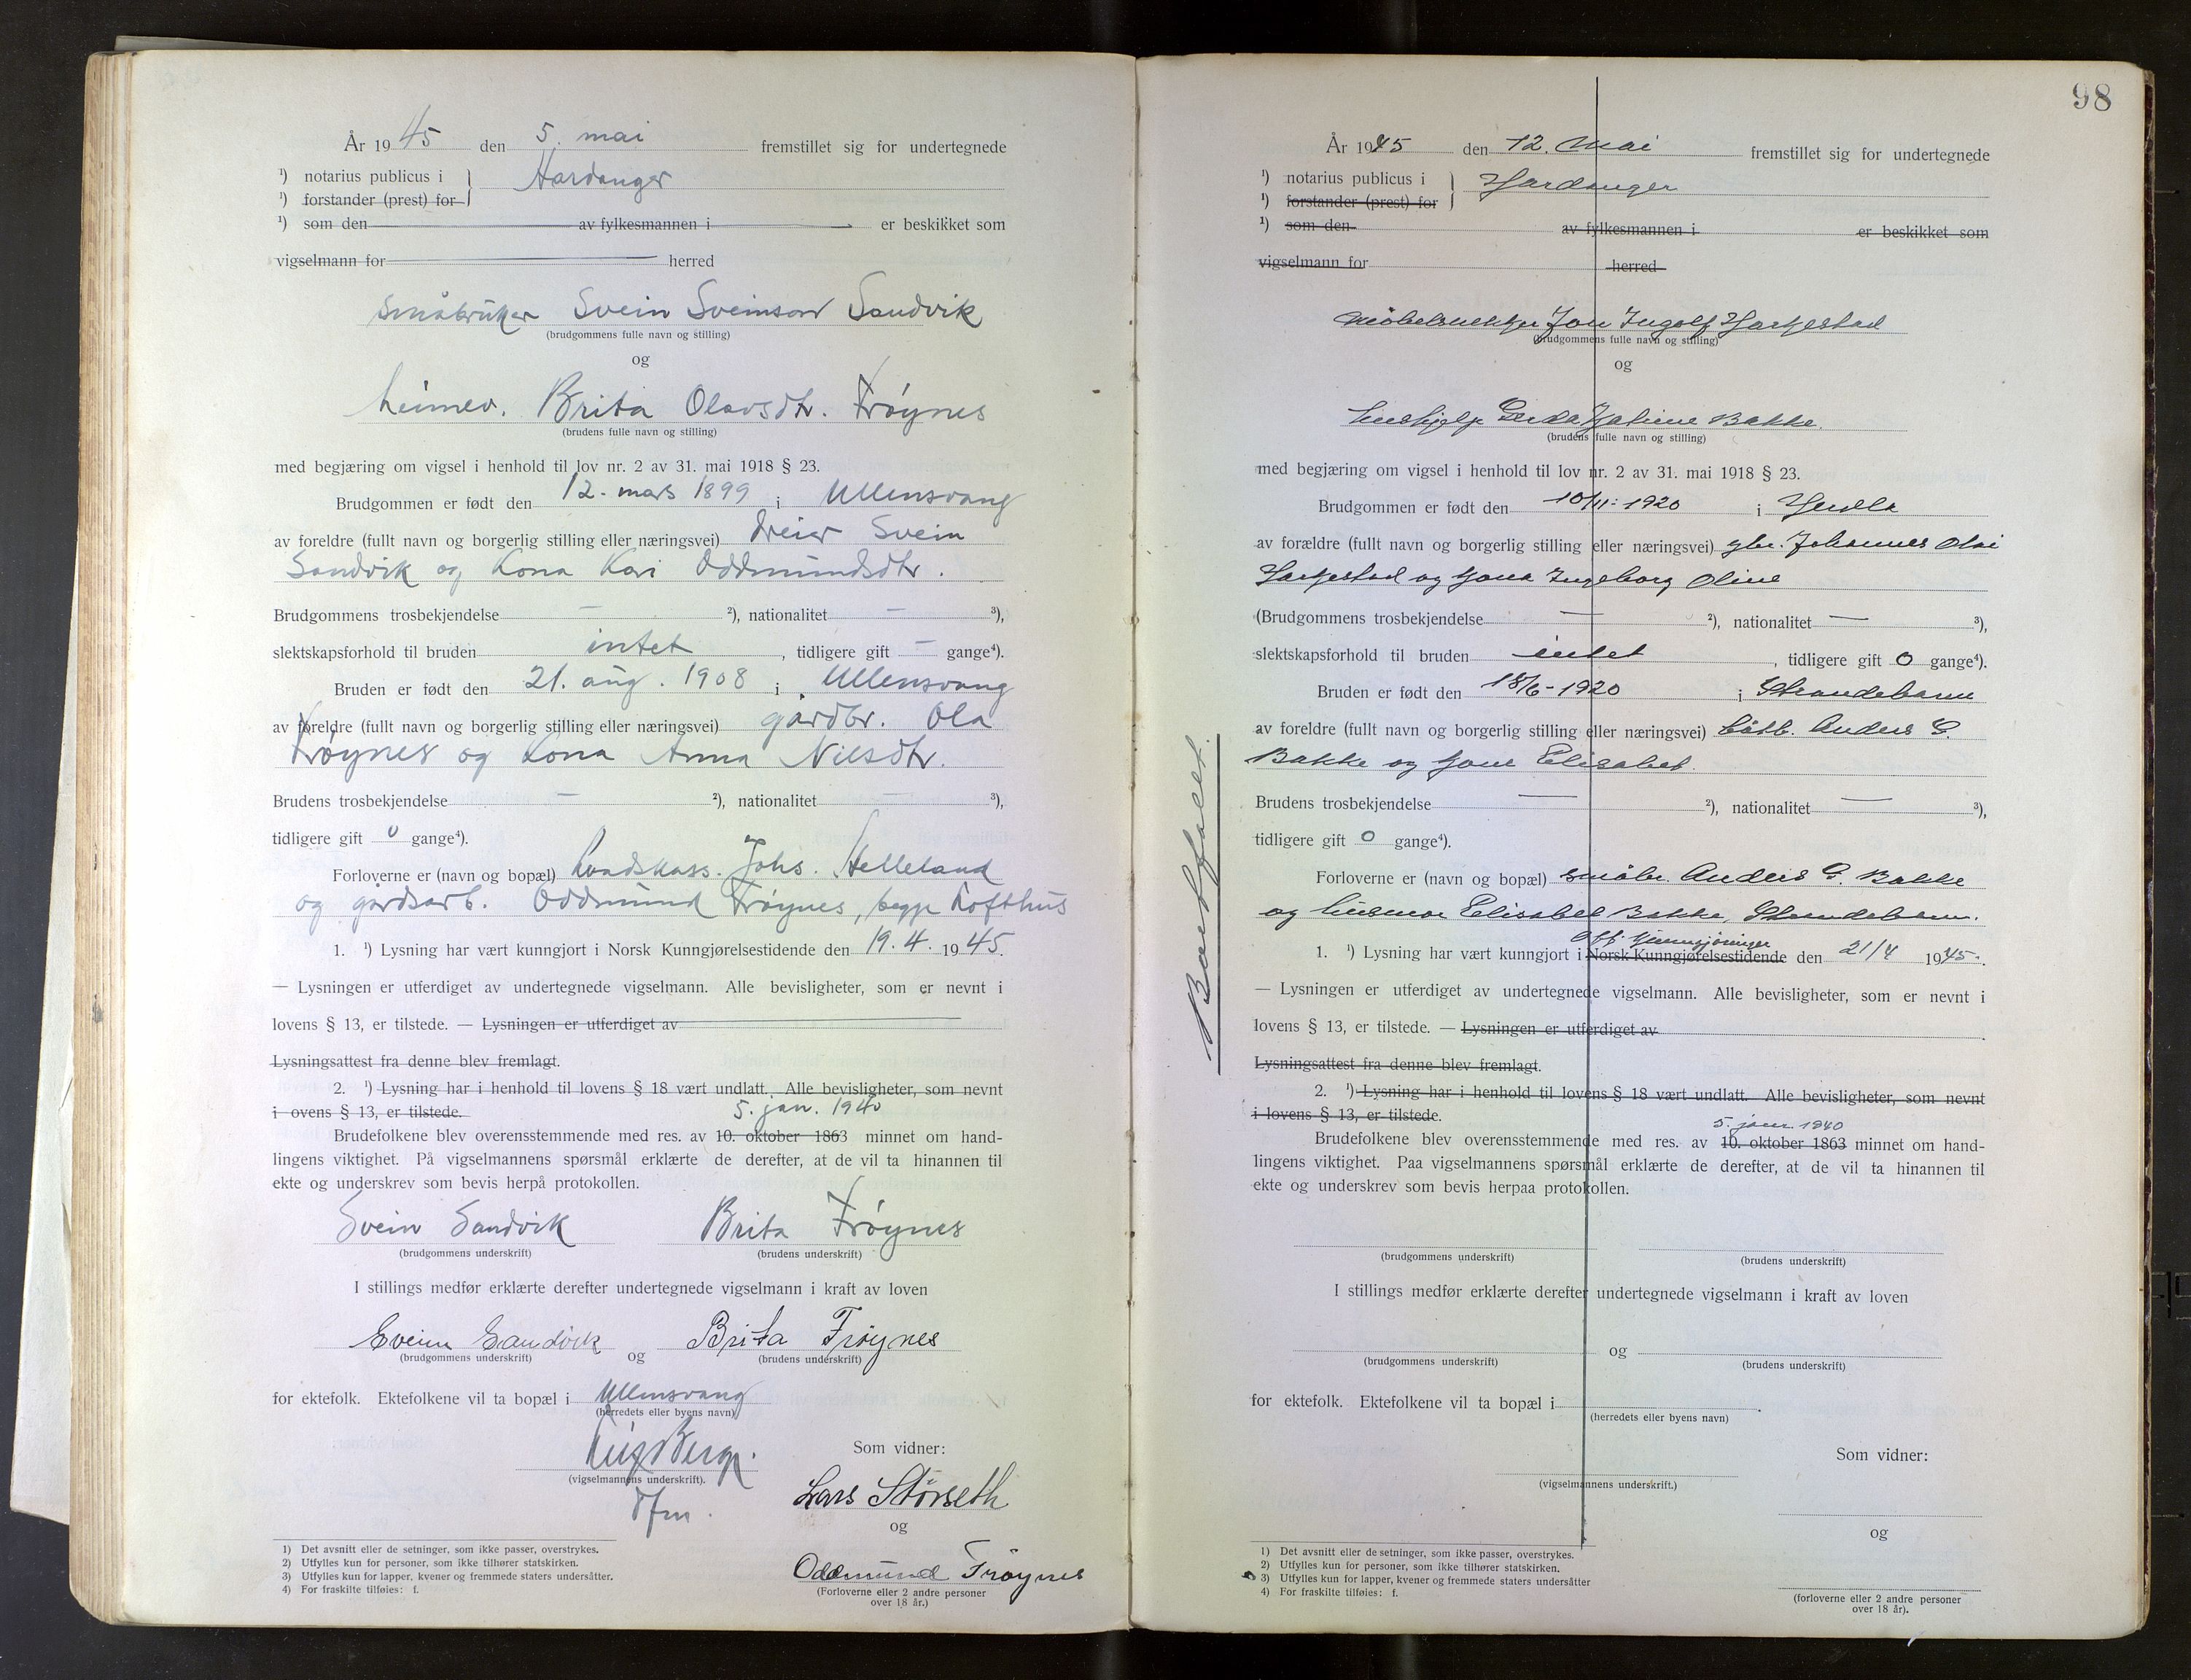 År 1945 den 5. mai fremstillet sig for undertegnede
¹) notarius publicus i } Hardanger
¹) forstander (prest) for
¹) som den av fylkesmannen i er beskikket som
vigselmann for herred
småbruker Svein Sveinson Sandvik
(brudgommens fulle navn og stilling)
og
heimev. Brita Olavsdtr. Frøynes
(brudens fulle navn og stilling)
med begjæring om vigsel i henhold til lov nr. 2 av 31. mai 1918 § 23.
Brudgommen er født den 12. mars 1899 i Ullensvang
av foreldre (fullt navn og borgerlig stilling eller næringsvei) dreier Svein
Sandvik og kona Kari Oddmundsdtr.
Brudgommens trosbekjendelse — ²), nationalitet — ³),
slektskapsforhold til bruden intet, tidligere gift — gange⁴).
Bruden er født den 21. aug. 1908 i Ullensvang
av foreldre (fullt navn og borgerlig stilling eller næringsvei) gardbr. Ola
Frøynes og kona Anna Nilsdtr.
Brudens trosbekjendelse — ²), nationalitet — ³),
tidligere gift 0 gange⁴).
Forloverne er (navn og bopæl) landskass. Johs. Helleland
og gårdsarb. Oddmund Frøynes, begge Lofthus
1. ¹) Lysning har vært kunngjort i Norsk Kunngjørelsestidende den 19.4. 1945.
— Lysningen er utferdiget av undertegnede vigselmann. Alle bevisligheter, som er nevnt i
lovens § 13, er tilstede. — Lysningen er utferdiget av
Lysningsattest fra denne blev fremlagt.
2. ¹) Lysning har i henhold til lovens § 18 vært undlatt. Alle bevisligheter, som nevnt
i ovens § 13, er tilstede.
5. jan. 1940
Brudefolkene blev overensstemmende med res. av 10. oktober 1863 minnet om hand-
lingens viktighet. På vigselmannens spørsmål erklærte de derefter, at de vil ta hinannen til
ekte og underskrev som bevis herpå protokollen.
Svein Sandvik Brita Frøynes
(brudgommens underskrift) (brudens underskrift)
I stillings medfør erklærte derefter undertegnede vigselmann i kraft av loven
Svein Sandvik og Brita Frøynes
(brudgommens underskrift) (brudens underskrift)
for ektefolk. Ektefolkene vil ta bopæl i Ullensvang
(herredets eller byens navn)
Som vidner:
(vigselmannens underskrift).
Lars Størseth
og
Oddmund Frøynes
(Forloverne eller 2 andre personer
over 18 år.)
1) Det avsnitt eller de setninger, som ikke passer, overstrykes.
2) Utfylles kun for personer, som ikke tilhører statskirken.
3) Utfylles kun for lapper, kvener og fremmede staters undersåtter.
4) For fraskilte tilføies: f.
98
År 1945 den 12. Mai fremstillet sig for undertegnede
¹) notarius publicus i } Hardanger
¹) forstander (prest) for
¹) som den av fylkesmannen i er beskikket som
vigselmann for herred
Møbelsnekker Jon Ingolf Hatjestad
(brudgommens fulle navn og stilling)
og
hushjelp Gerda Katrine Bakke.
(brudens fulle navn og stilling)
med begjæring om vigsel i henhold til lov nr. 2 av 31. mai 1918 § 23.
Brudgommen er født den 10/11-1920 i Herdla
av forældre (fullt navn og borgerlig stilling eller næringsvei) gbr. Johannes Olai
Hatjestad og kona Ingeborg Oline
(Brudgommens trosbekjendelse — ²), nationalitet — ³),
slektskapsforhold til bruden intet, tidligere gift 0 gange⁴).
Bruden er født den 18/6-1920 i Strandebarm
av foreldre (fullt navn og borgerlig stilling eller næringsvei) båtb. Anders G.
Bakke og kone Elisabet.
Brudens trosbekjendelse — ²), nationalitet — ³),
tidligere gift 0 gange⁴).
Forloverne er (navn og bopæl) småbr. Anders G. Bakke
og husmor Elisabet Bakke, Strandebarm.
off. kunngjøringer
1. ¹) Lysning har vært kunngjort i Norsk Kunngjørelsestidende den 21/4 1945.
— Lysningen er utferdiget av undertegnede vigselmann. Alle bevisligheter, som er nevnt i
lovens § 13, er tilstede. — Lysningen er utferdiget av
Lysningsattest fra denne blev fremlagt.
2. ¹) Lysning har i henhold til lovens § 18 vært undlatt. Alle bevisligheter, som nevnt
i lovens § 13, er tilstede.
5. janr. 1940
Brudefolkene blev overensstemmende med res. av 10. oktober 1863 minnet om hand-
lingens viktighet. Paa vigselmannens spørsmål erklærte de derefter, at de vil ta hinannen til
ekte og underskrev som bevis herpaa protokollen.
(brudgommens underskrift) (brudens underskrift)
I stillings medfør erklærte derefter undertegnede vigselmann i kraft av loven
og
(brudgommens underskrift) (brudens underskrift)
for ektefolk. Ektefolkene vil ta bopæl i
(herredets eller byens navn)
Som vidner:
(vigselmannens underskrift.)
og
(forloverne eller 2 andre personer
over 18 år).
1) Det avsnitt eller de setninger, som ikke passer, overstrykes.
2) Utfylles kun for personer, som ikke tilhører statskirken.
3) Utfylles kun for lapper, kvener og fremmede staters undersåtter
4) For fraskilte tilføies: f.
Bortfallet.